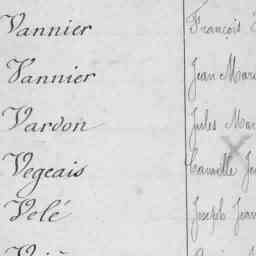 Vannier François
Vannier Jean Mar
Vardon Jules Mar
Vegeais Camille Je
Velé Joseph Jean